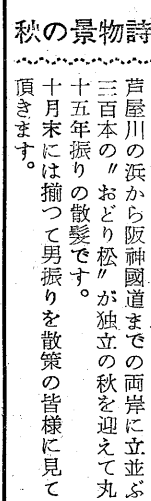 秋の景物詩
芦屋川の浜から阪神國道までの両岸に立並ぶ
三百本の〝おどり松〟が独立の秋を迎えて丸
十五年振りの散髪です。
十月末には揃つて男振りを散策の皆様に見て
頂きます。